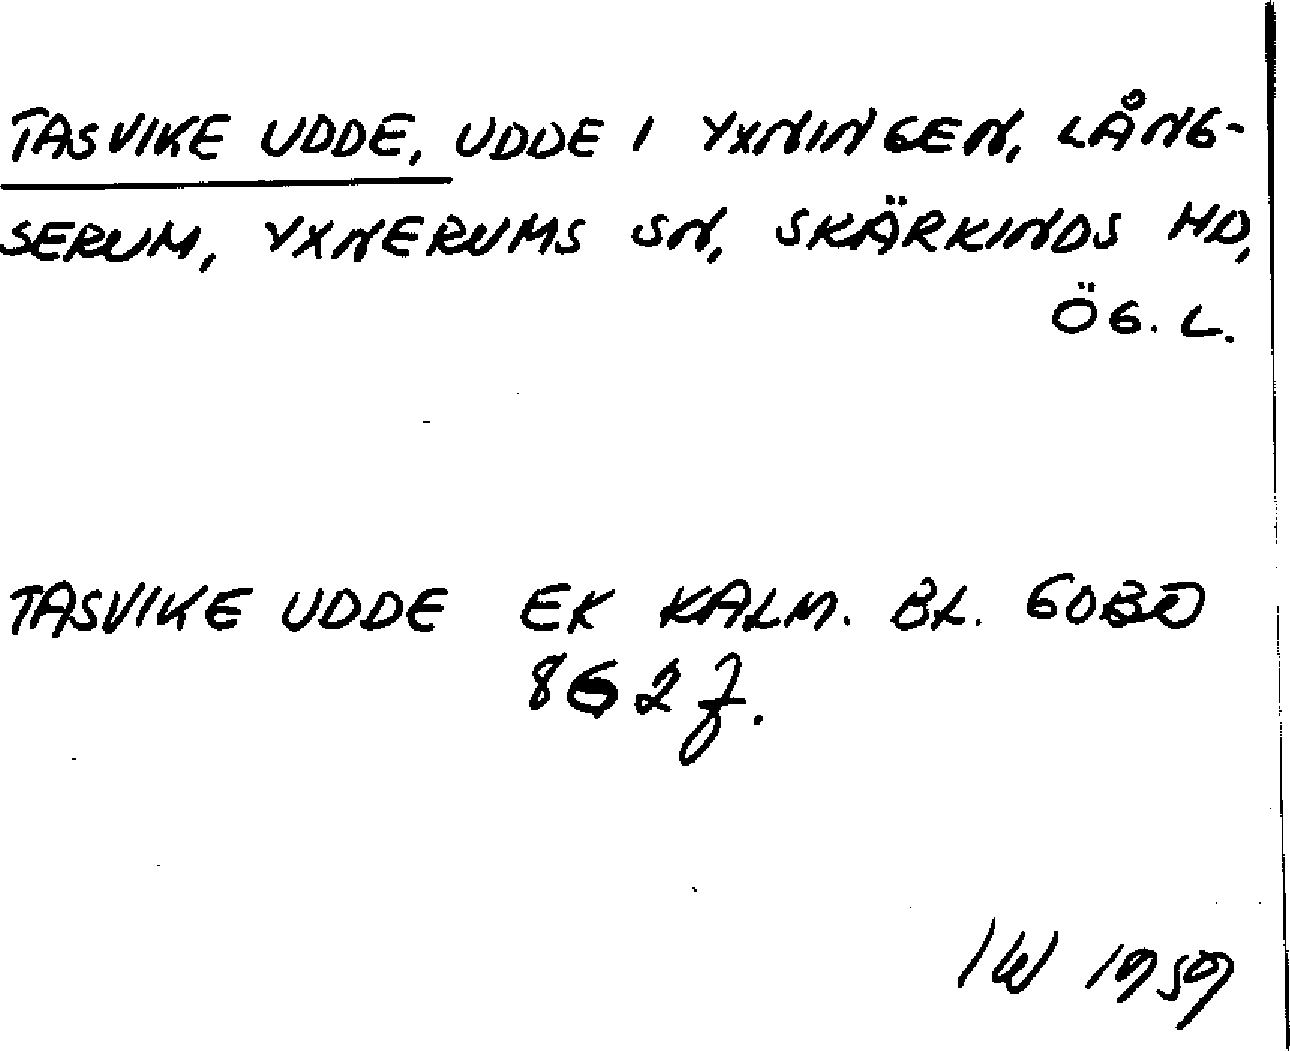 TASVIKE UDDE, UDDE I YXNINGEN, LÅNG-
SERUM, YXNERUMS SN, SKÄRKINDS HD,
ÖG. L.
TASVIKE UDDE EK KALM. BL. GOBO
862 f.
IW 1959